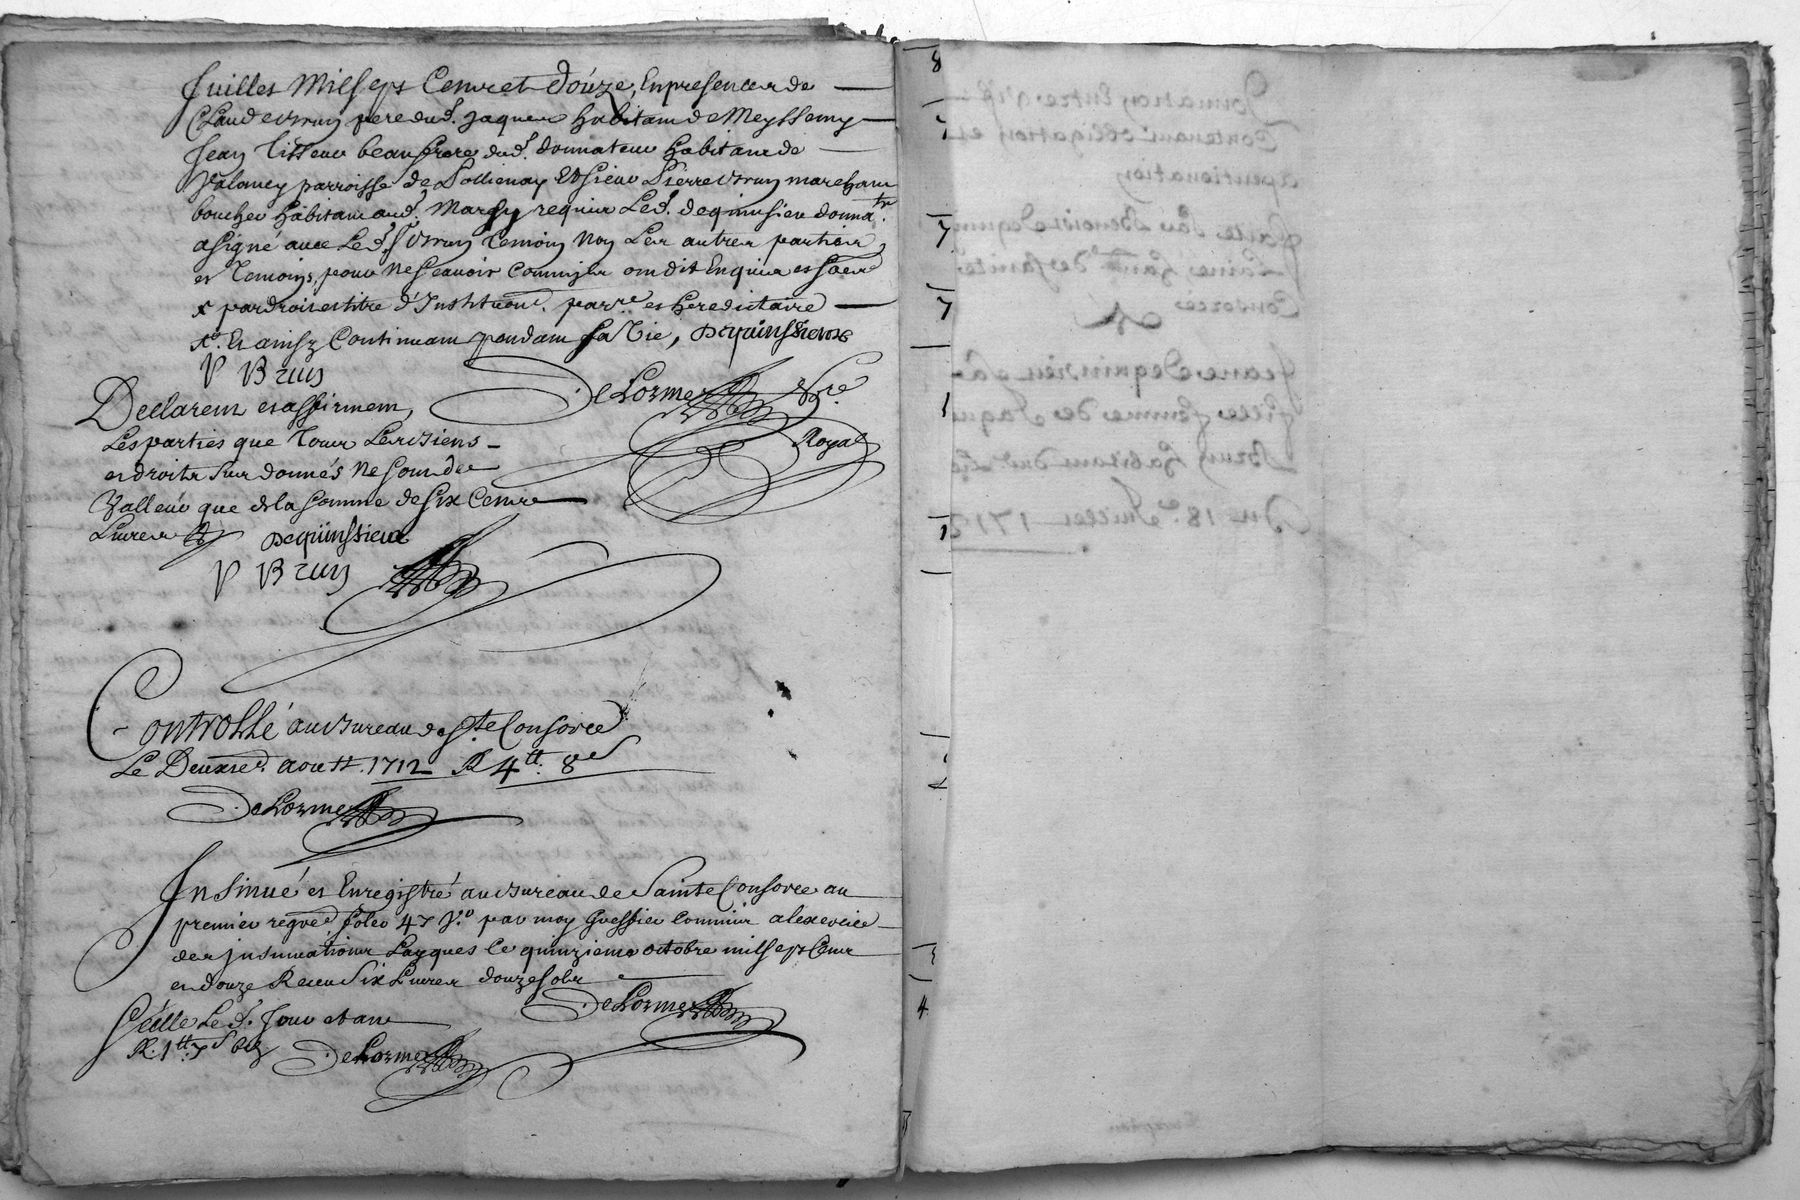 Juillet Mil sept Cent et douze, En presence de
Claude Brun pere dud. Jaques habitant de Meyssemy
Jean Tisseur beaufrere dud. donnateur habitant de
Valoncy parroisse de Pollienay Et sieur Pierre Brun marchant
boucher habitant aud. Marsy requis Led. dequinsieu donnatr.
a signé avec Led. sr Brun temoin Non Les autres parties
et Temoins, pour ne scavoir Comm'ils ont dit Enquis et some
x par droit et titre d'Institution. parre. et hereditaire
xo. Et ainsy Continuant pendant sa Vie, Dequinssieux
P Brun
De Lorme Nre.
Royal
Declarent et affirment
Les parties que Tous Les biens
et droits sus donnés Ne sont de
Valleur que de la somme de six Cents
Livres Dequinssieux
P Brun
Controllé au bureau de Ste Consorce
Le Deuxie. aoutt 1712 R 4tt. 8s
De Lorme
Insinué et Enregistré au bureau de Sainte Consorce au
premier regre. folio 47 Vo. par moy Greffier Commis a lexercice
des insinuations Layques Le quinzieme octobre mil sept Cent
et douze Receu Six Livres douze sols
De Lorme
Scellé Led. Jour et an
R. 1tt. 7s
De Lorme
8
7
7
7
1
1
4
Donnation Entre Vifs
Contenant obligation et
pentionation
faites Par Benoist Dequin
L'ainé hant de sainte
Consorce
A
Jeane Dequinsieu sa
fille femme de Jaque
Brun habitant dud. Lie
Du 18e Juillet 1712